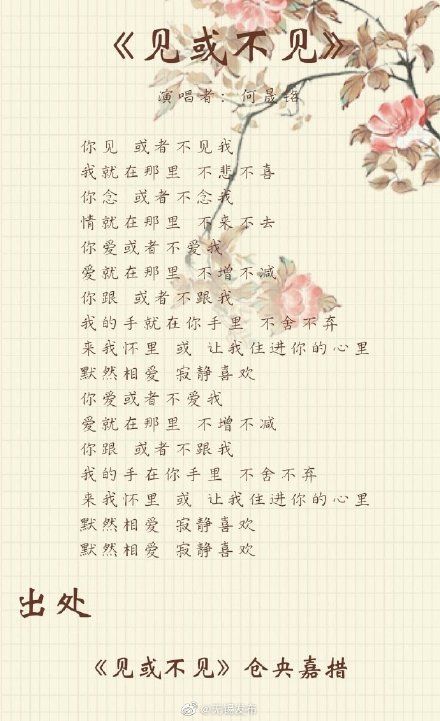 《见或不见》
演唱者：何晟铭
你见 或者不见我
我就在那里 不悲不喜
你念 或者不念我
情就在那里 不来不去
你爱或者不爱我
爱就在那里 不增不减
你跟 或者不跟我
我的手就在你手里 不舍不弃
来我怀里 或 让我住进你的心里
默然相爱 寂静喜欢
你爱或者不爱我
爱就在那里 不增不减
你跟 或者不跟我
我的手在你手里 不舍不弃
来我怀里 或 让我住进你的心里
默然相爱 寂静喜欢
默然相爱 寂静喜欢
出处
《见或不见》仓央嘉措
@无锡发布